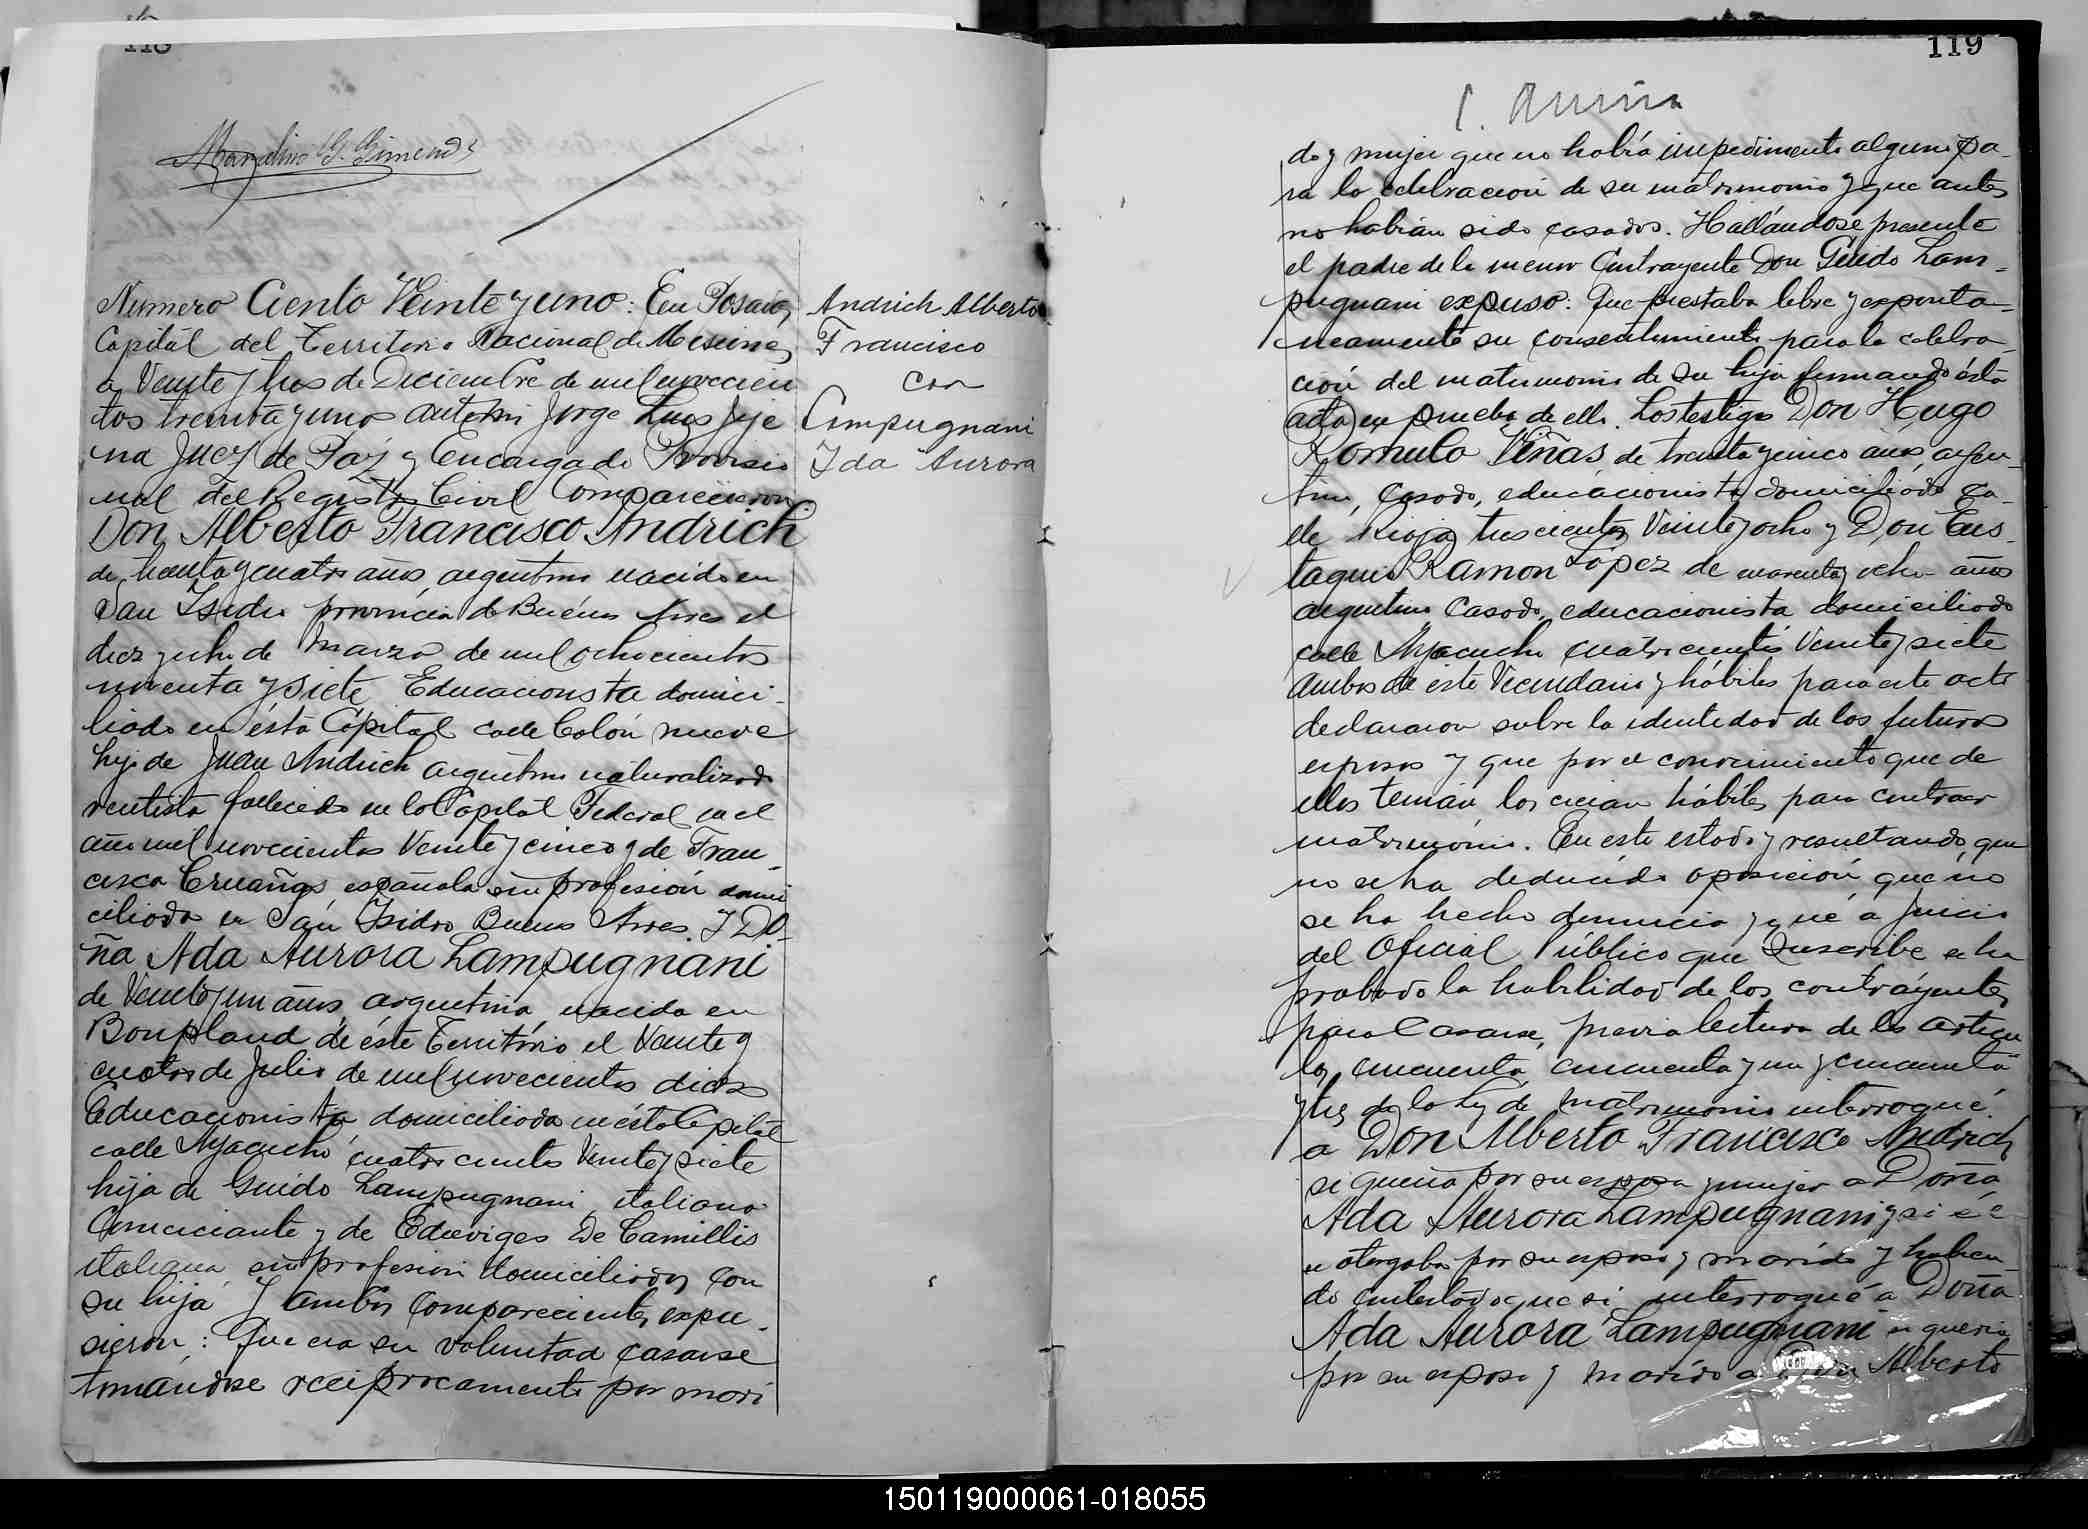 118
Marcelino G. Gimenez
Numero Ciento Veinte y uno: En Posadas,
Capital del Territorio Nacional de Misiones,
a Veinte y tres de Diciembre de mil novecien
tos treinta y uno, ante mi Jorge Luis Jeje
na Juez de Paz y Encargado Proviso
nal del Registro Civil Comparecieron
Don Alberto Francisco Andrich
de treinta y cuatro años, argentino nacido en
San Isidro provincia de Buenos Aires el
diez y ocho de Marzo de mil ochocientos
noventa y siete Educacionista domici-
liado en ésta Capital calle Colón nueve
hijo de Juan Andrich argentino naturalizado
rentista fallecido en la Capital Federal en el
año mil novecientos Veinte y cinco y de Fran-
cisca Cruañas española sin profesión domi
ciliada en San Isidro Buenos Aires. Y Do-
ña Ada Aurora Lampugnani
de Veinte y un años, argentina nacida en
Bonpland de éste Territorio el Veinte y
cuatro de Julio de mil novecientos diez
Educacionista domiciliada en ésta Capital
calle Ayacucho cuatrocientos Veinte y siete
hija de Guido Lampugnani italiano
Comerciante y de Eduviges De Camillis
italiana sin profesión domiciliados con
su hija Y ambos Comparecientes expu-
sieron: Que era su voluntad casarse
tomándose reciprocamente por mari
Andrich Alberto
Francisco
con
Lampugnani
Ada Aurora
119
do y mujer que no había impedimento alguno pa-
ra la celebración de su matrimonio y que antes
no habían sido casados. Hallándose presente
el padre de la menor Contrayente Don Guido Lam-
pugnani expuso: Que prestaba libre y esponta-
neamente su consentimiento para la celebra-
ción del matrimonio de su hija firmando ésta
acta en prueba de ello. Los testigos Don Hugo
Romulo Viñas, de treinta y cinco años, argen-
tino, Casado, educacionista domiciliado ca-
lle Rioja trescientos Veinte y ocho y Don Eus-
taquio Ramon López de cuarenta y ocho años
argentino Casado, educacionista domiciliado
calle Ayacucho cuatrocientos Veinte y siete
Ambos de éste Vecindario y hábiles para este acto
declararon sobre la identidad de los futuros
esposos y que por el conocimiento que de
ellos tenían los creian hábiles para contraer
matrimonio. En este estado y resultando, que
no se ha deducido oposición que no
se ha hecho denuncia y que a juicio
del Oficial Público que suscribe se ha
probado la habilidad de los contrayentes
para Casarse, previa lectura de los artícu
los cincuenta, cincuenta y uno y cincuenta
y tres de la ley de matrimonio interrogué
a Don Alberto Francisco Andrich
si queria por su esposa y mujer a Doña
Ada Aurora Lampugnani y si él
se otorgaba por su esposo y marido y habien-
do contestado que si interrogué a Doña
Ada Aurora Lampugnani si queria
por su esposo y marido a Don Alberto
150119000061-018055